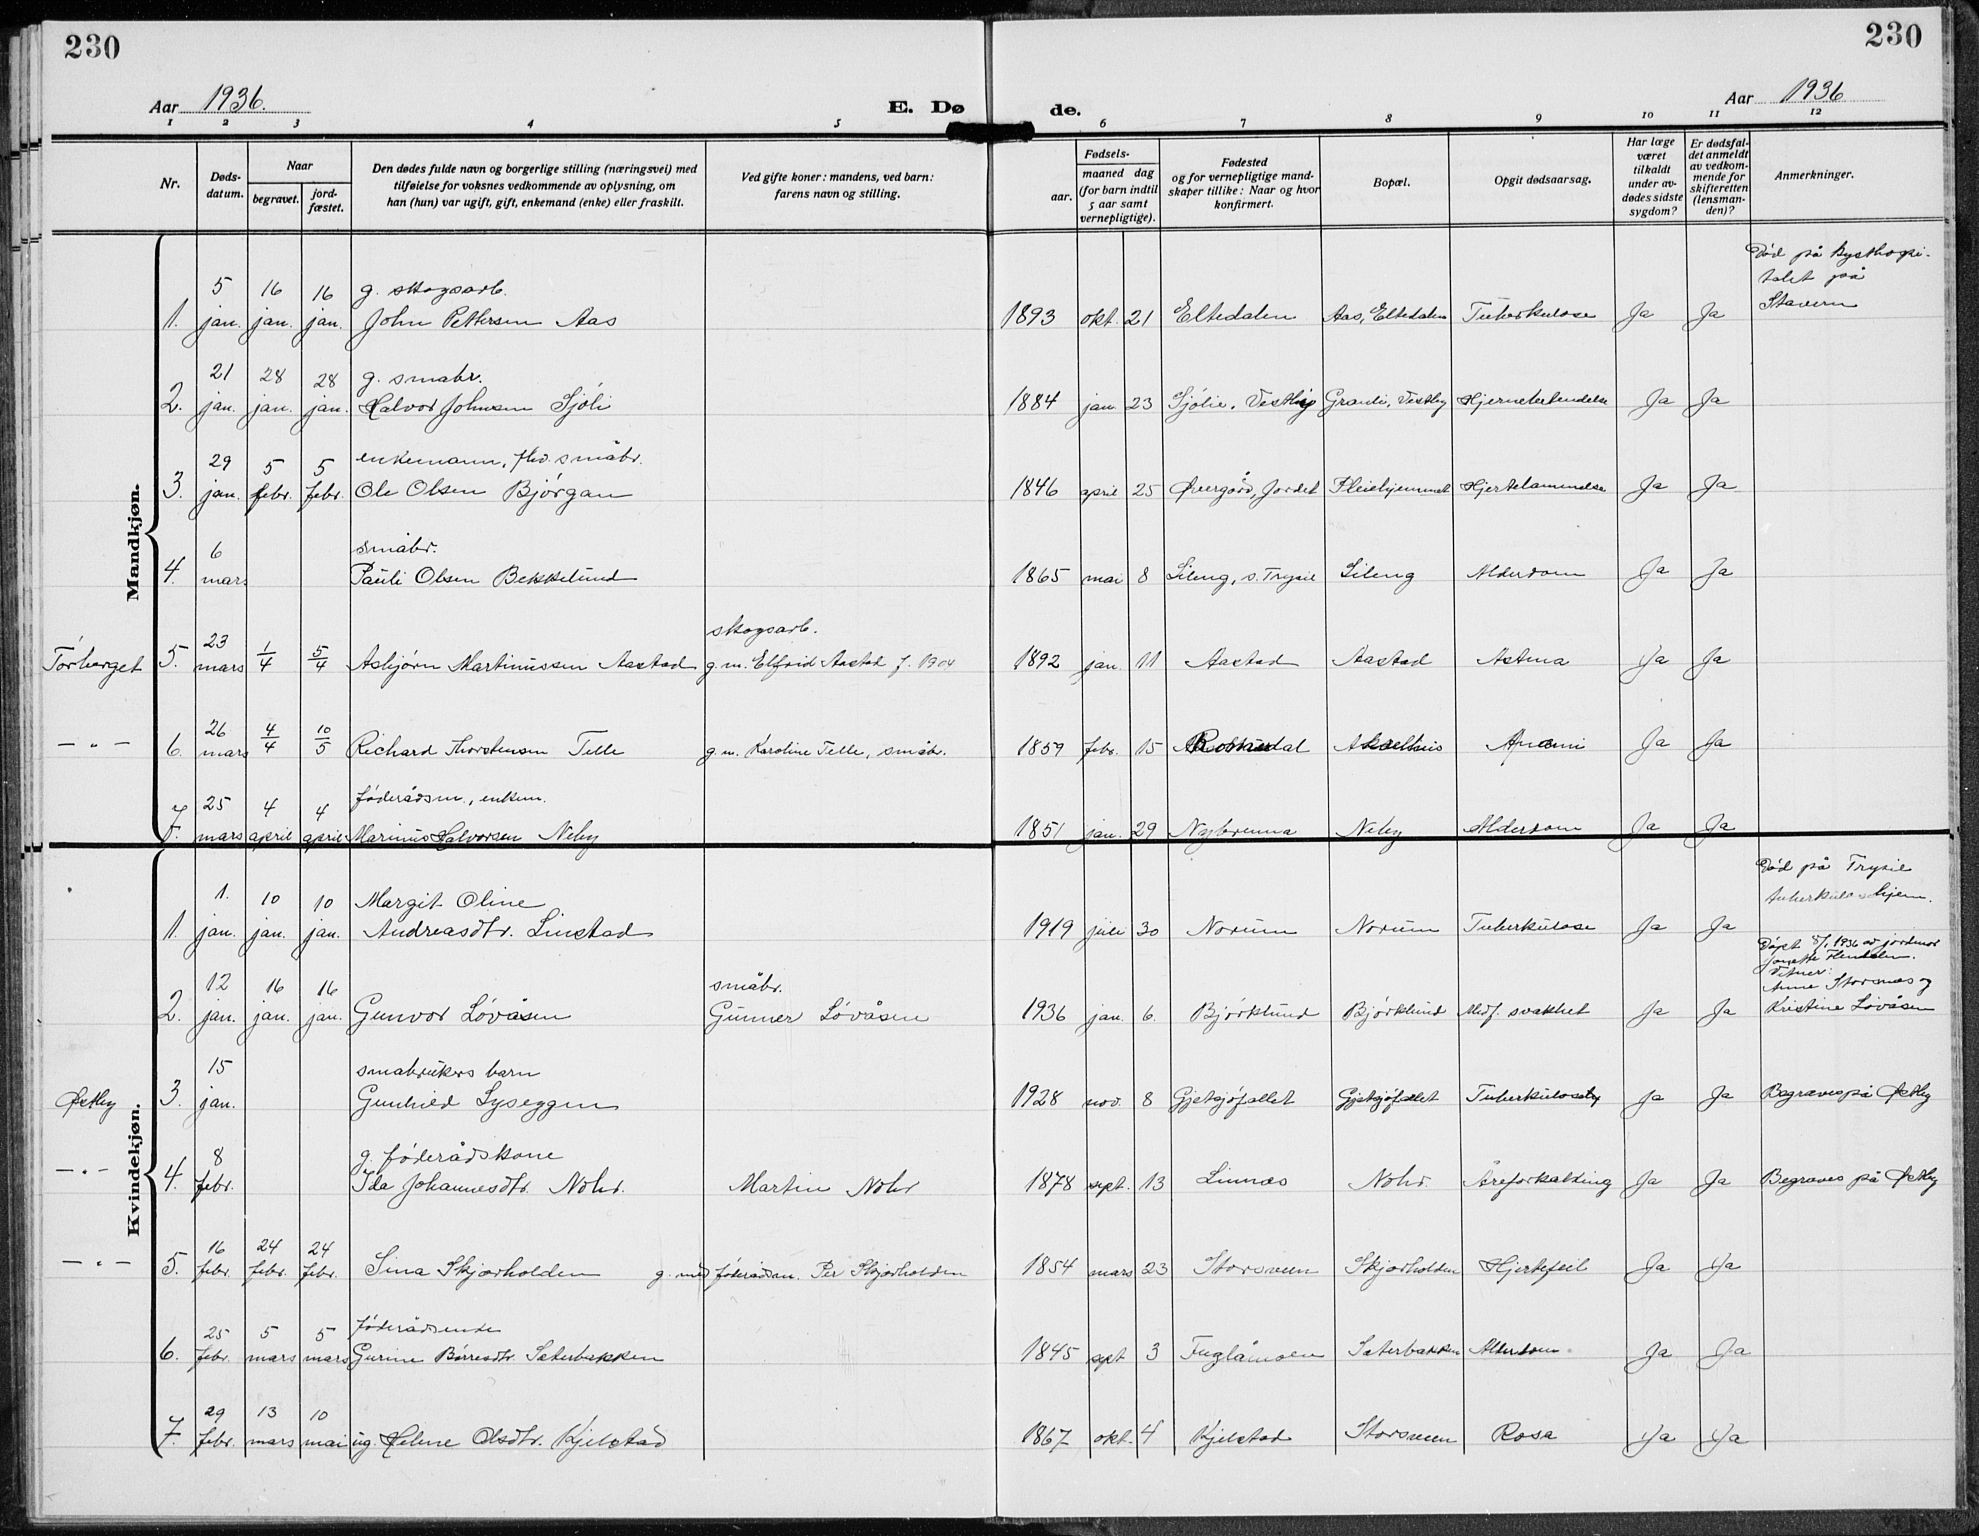 230
230
Aar 1936.
E. Dø
de.
Aar 1936
1 2 3 4 5 6 7 8 9 10 11 12
Nr.
Døds-
datum.
Naar
begravet.
jord-
fæstet.
Den dødes fulde navn og borgerlige stilling (næringsvei) med
tilføielse for voksnes vedkommende av oplysning, om
han (hun) var ugift, gift, enkemand (enke) eller fraskilt.
Ved gifte koner: mandens, ved barn:
farens navn og stilling.
Fødsels-
aar.
maaned dag
(for barn indtil
5 aar samt
vernepligtige).
Fødested
og for vernepligtige mand-
skaper tillike: Naar og hvor
konfirmert.
Bopæl.
Opgit dødsaarsag.
Har læge
været
tilkaldt
under av-
dødes sidste
sygdom?
Er dødsfal-
det anmeldt
av vedkom-
mende for
skifteretten
(lensman-
den)?
Anmerkninger.
Mandkjøn.
5 16 16 g. skogsarb.
1. jan. jan. jan. John Pettersen Aas 1893 okt. 21 Eltedalen Aas, Eltedalen Tuberkulose Ja Ja
Død på kysthospi-
talet på
Stavern
21 28 28 g. småbr.
2. jan. jan. jan. Halvor Johnsen Sjøli 1884 jan. 23 Sjølie, Vestby Granli, Vestby Hjernebetendelse Ja Ja
29 5 5 enkemann, fhv. småbr.
3. jan. febr. febr. Ole Olsen Bjørgan 1846 april 25 Øvergård, Jordet Pleiehjemmet Hjertelammelse Ja Ja
6 småbr.
4. mars Pauli Olsen Bekkelund 1865 mai 8 Lileng, s. Trysil Lileng Alderdom Ja Ja
23 1/4 5/4 skogsarb.
Tørberget 5. mars Asbjørn Martinussen Aastad g. m. Elfrid Aastad f. 1904 1892 jan. 11 Aastad Aastad Astma Ja Ja
26 4/4 10/5
— " — 6. mars Richard Thorstensen Telle g. m. Karoline Telle, småbr. 1859 febr. 15 Akselhus Anemi Ja Ja
25 4 4 føderådsm., enkem.
7. mars april april Marinus Halvorsen Neby 1851 jan. 29 Nybrenna Neby Alderdom Ja Ja
Kvindekjøn.
1. 10 10 Margit Oline
1. jan. jan. jan. Andreasdtr. Linstad 1919 juli 30 Norum Norum Tuberkulose Ja Ja
Død på Trysil
tuberkulosehjem.
12 16 16 småbr.
2. jan. jan. jan. Gunvor Løvåsen Gunner Løvåsen 1936 jan. 6 Bjørklund Bjørklund Medf. svakhet Ja Ja
Døpt 8/1 1936 av jordmor
Vitner:
Anne Storsnes og
Kristine Løvåsen
15 småbrukers barn
Østby 3. jan. Gunhild Lyseggen 1928 nov. 8 Gjetsjøfallet Gjetsjøfallet Tuberkulose Ja Ja Begraves på Østby
8 g. føderådskone
— " — 4. febr. Ida Johannesdtr. Nohr. Martin Nohr 1878 sept. 13 Linnes Nohr. Åreforkalking Ja Ja Begraves på Østby
16 24 24
— " — 5. febr. febr. febr. Sina Skjærholden g. med føderådsm. Per Skjærholden 1854 mars 23 Storsveen Skjærholden Hjertefeil Ja Ja
25 5 5 føderådsenke
6. febr. mars mars Gurine Børresdtr. Sæterbakken 1845 sept 3 Fuglåmoen Sæterbakken Alderdom Ja Ja
29 13 10
7. febr. mars mai ug. Helene Olsdtr. Kjelstad 1867 okt. 4 Kjelstad Storsveen Rosa Ja Ja